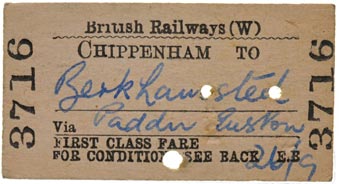 3716
British Railways (W)
CHIPPENHAM TO
Berkhamsted
Via Paddn Euston
FIRST CLASS FARE 26/9
FOR CONDITIONS SEE BACK E.E
3716